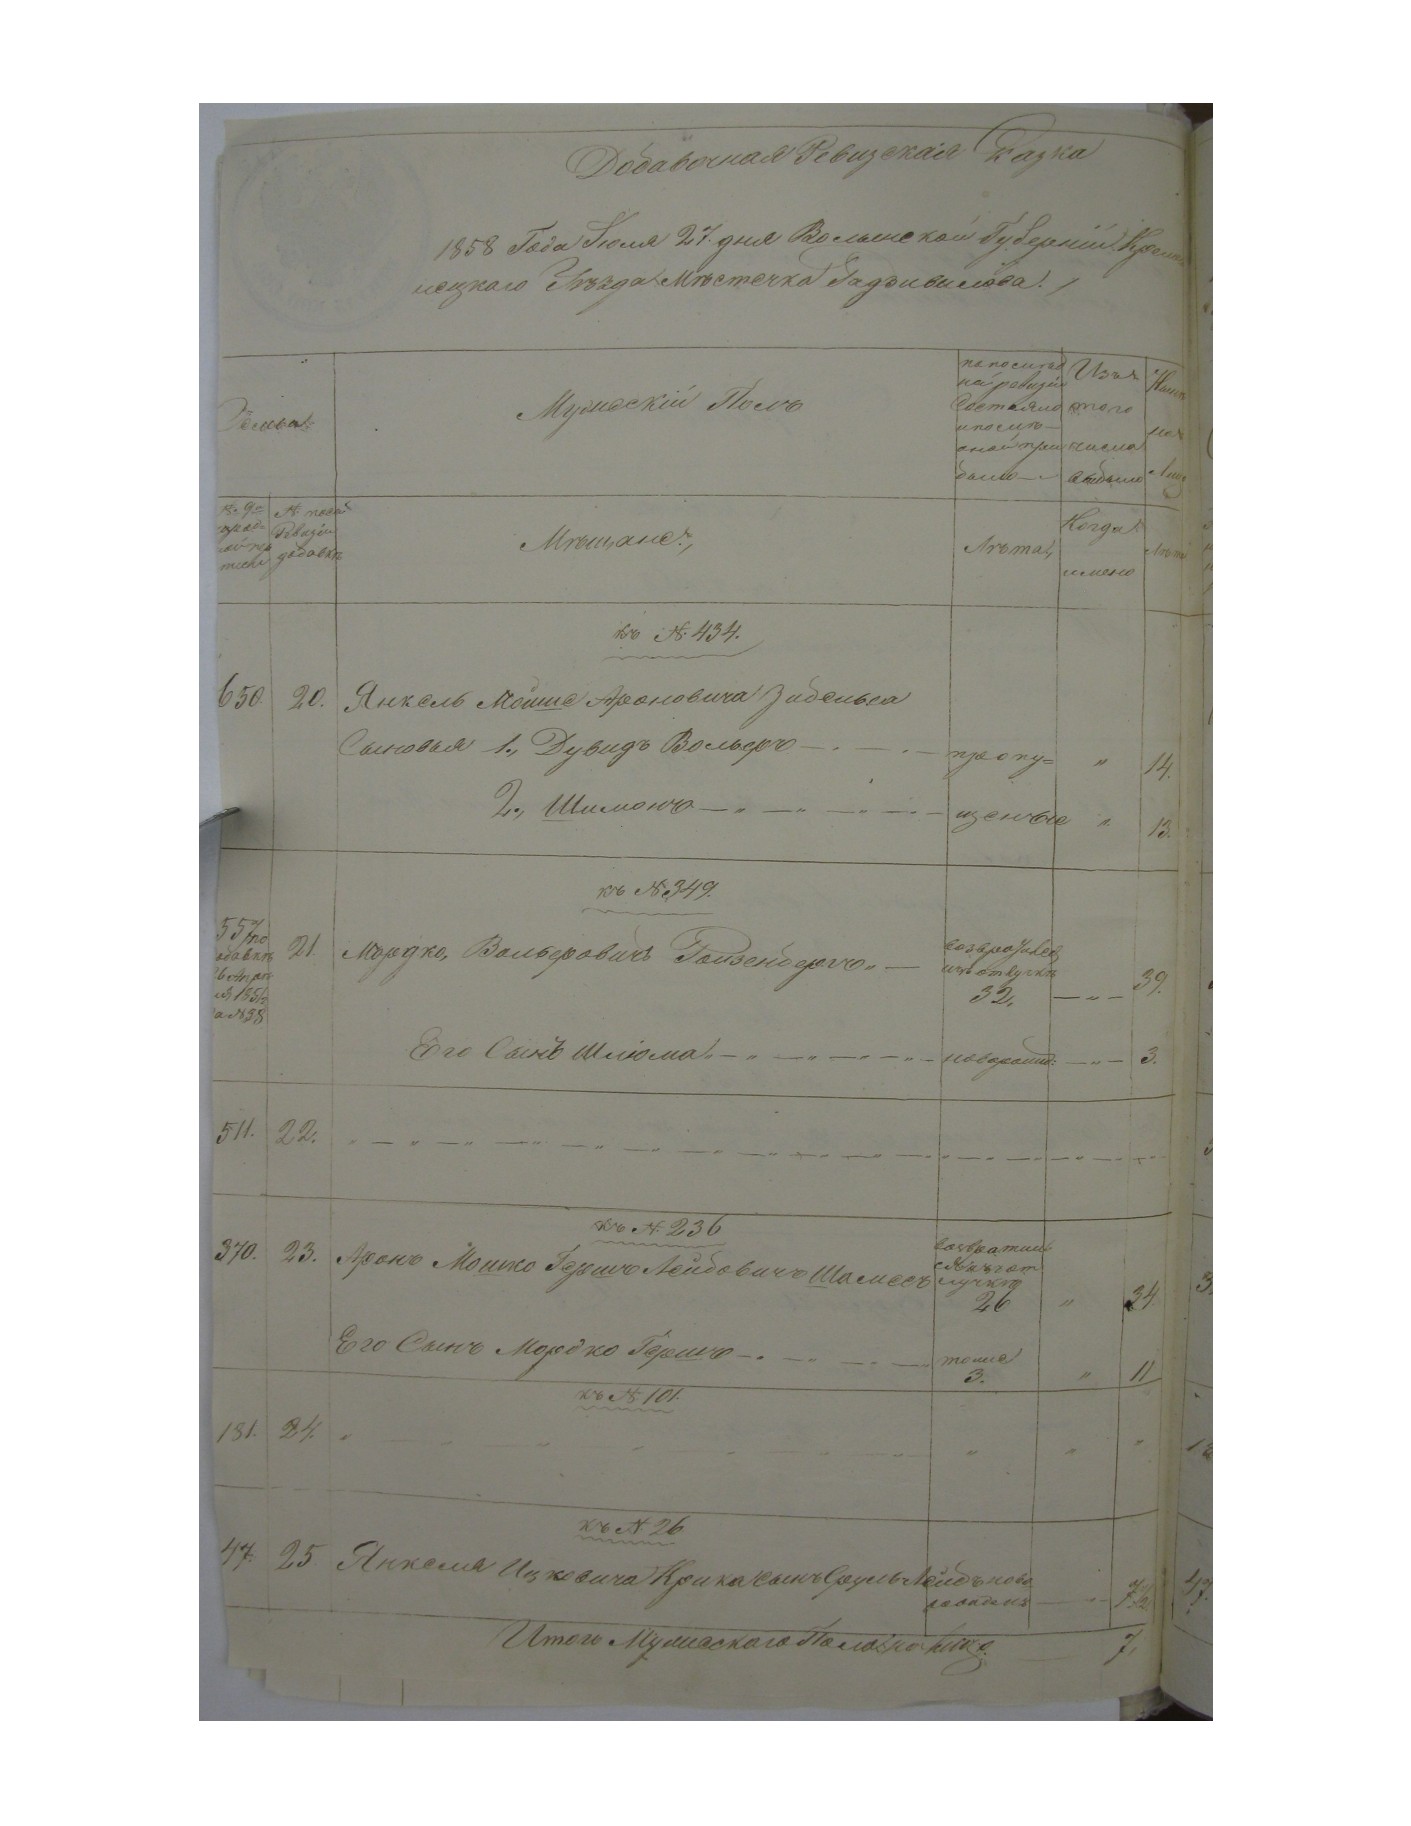 Добавочная Ревизская Сказка
1858 Года Іюля 27. дня Волынской Губерніи Кремě
нецкаго Уѣзда Мѣстечка Радзивилова.
Семьи
Мужескій Полъ
по послѣд
ней ревизіи
состояло
и послѣ
оной при
было
Изъ
того
числа
выбыло
Нынѣ
на
лицо
№ новой
Ревизіи
добавкѣ
Мѣщане
Лѣта
Когда
имено
Лѣта
къ № 434.
650. 20. Янкель Мошие Ароновича Зибельса
Сыновья 1., Дувидъ Вольфъ пропу= " 14.
2., Шимонъ щенные " 13.
къ № 349.
557 по
добавкѣ
26 Апрѣ
за № 58
21. Мордко Вольфовичъ Гойзенбергъ
возвратився
изъ отлучки
32. — " — 39.
Его Сынъ Шлюма новорожд: — " — 3.
511. 22.
къ № 236
370. 23. Аронъ Мошко Гершъ Лейбовичъ Шамесъ
возвратил
ся изъ от
лучки
26 " 34.
Его Сынъ Мордко Гершъ тоже
3. " 11
къ № 101.
181. 24.
къ № 26
47. 25 Янкеля Ицковича Крика сынъ Сруль Лейбъ ново
рожденъ
Итого Мужескаго Пола на лицо 7.